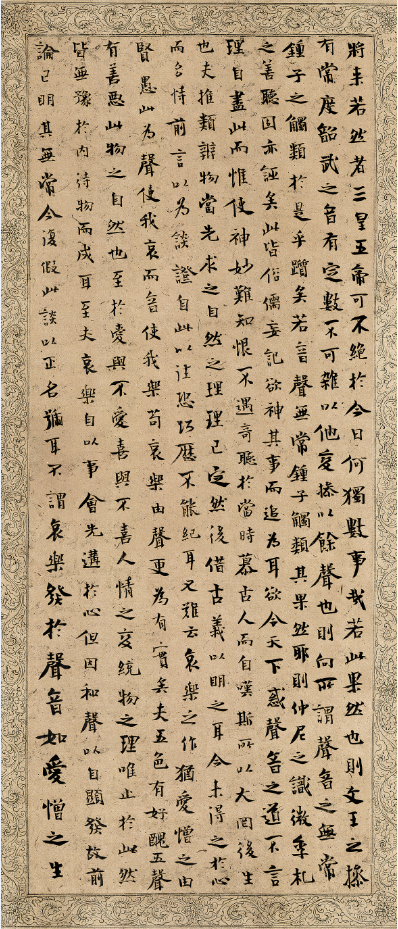 將来若然者三皇五帝可不絕於今日何獨數事哉若此果然也則文王之操
有常度韶武之音有定數不可雜以他變操以餘聲也則向所謂聲音之無常
鍾子之觸類於是乎躓矣若言聲無常鍾子觸類其果然耶則仲尼之識微季札
之善聽固亦誣矣此皆俗儒妄記欲神其事而追為耳欲令天下惑聲音之道不言
理自盡此而惟使神妙難知恨不遇奇聽於當時慕古人而自嘆斯所以大罔後生
也夫推類辨物當先求之自然之理理已定然後借古義以明之耳今未得之於心
而多恃前言以為談證自此以往恐巧歷不能紀耳又難云哀樂之作猶愛憎之由
賢愚此為聲使我哀而音使我樂苟哀樂由聲更為有實矣夫五色有好醜五聲
有善惡此物之自然也至於愛與不愛喜與不喜人情之變統物之理唯止於此然
皆無豫於內待物而成耳至夫哀樂自以事會先遘於心但因和聲以自顯發故前
論已明其無常今復假此談以正名號耳不謂哀樂發於聲音如愛憎之生